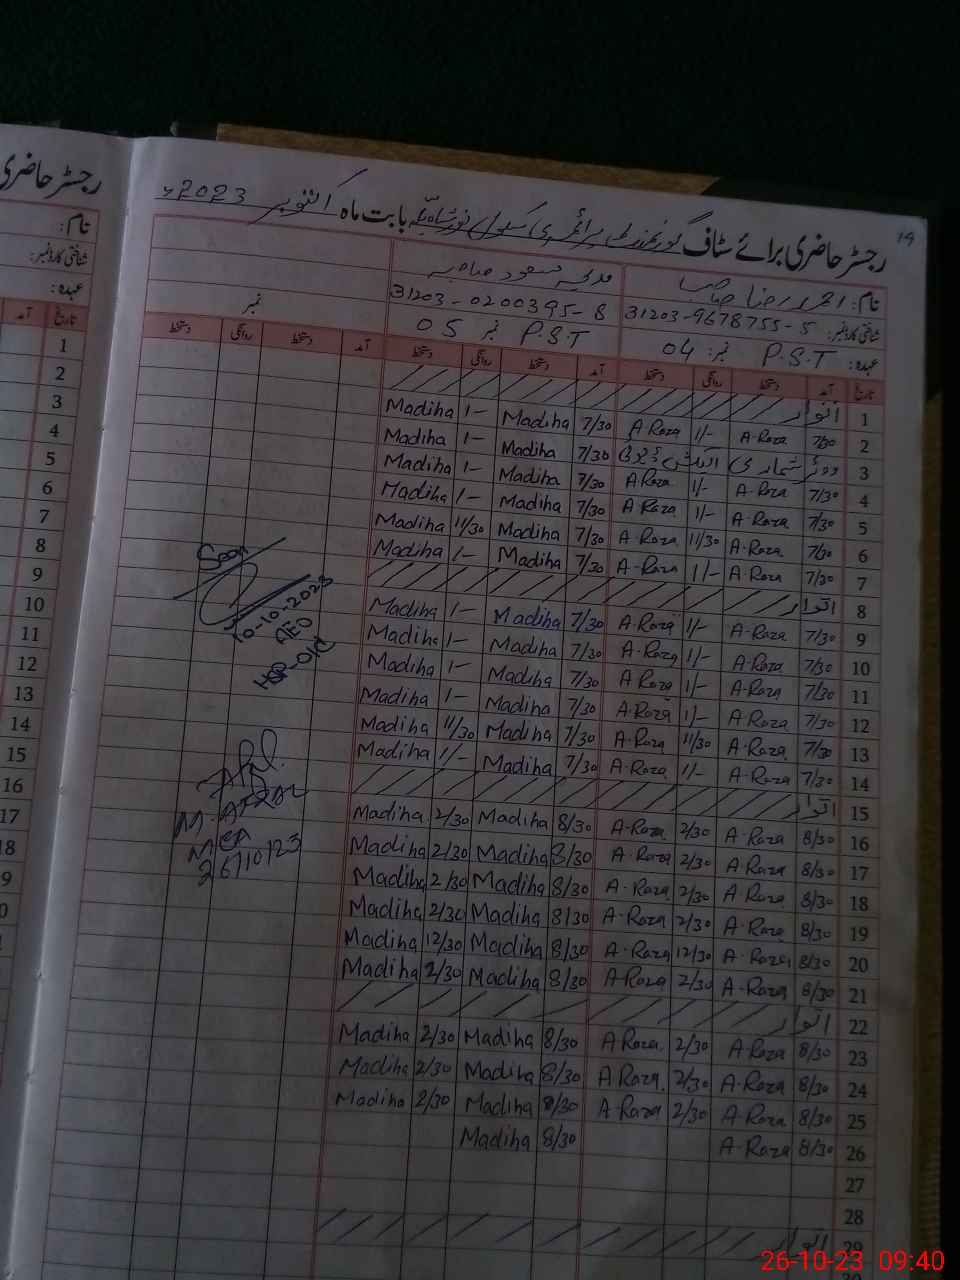 19
رجسٹر حاضری برائے سٹاف گورنمنٹ پرائمری سکول نور شاہ بابت ماہ اکتوبر 2023ء
نام: احمد رضا صاحب مدیحہ مسعود صاحبہ
شناختی کارڈ نمبر: 31203-9678755-5 31203-0200395-8
عہدہ: P.S.T نمبر: 04 P.S.T نمبر 05 نمبر
تاریخ آمد دستخط روانگی دستخط آمد دستخط روانگی دستخط آمد دستخط روانگی دستخط
1 اتوار
2 7/30 A-Raza 1/- A-Raza 7/30 Madiha 1- Madiha
3 ووٹر شماری الیکشن ڈیوٹی 7/30 Madiha 1- Madiha
4 7/30 A-Raza 1/- A-Raza 7/30 Madiha 1- Madiha
5 7/30 A-Raza 1/- A-Raza 7/30 Madiha 1- Madiha
6 7/30 A-Raza 11/30 A-Raza 7/30 Madiha 11/30 Madiha
7 7/30 A-Raza 1/- A-Raza 7/30 Madiha 1- Madiha
8 اتوار
9 7/30 A-Raza 1/- A-Raza 7/30 Madiha 1- Madiha
10 7/30 A-Raza 1/- A-Raza 7/30 Madiha 1- Madiha
11 7/30 A-Raza 1/- A-Raza 7/30 Madiha 1- Madiha
12 7/30 A-Raza 1/- A-Raza 7/30 Madiha 1- Madiha
13 7/30 A-Raza 11/30 A-Raza 7/30 Madiha 11/30 Madiha
14 7/30 A-Raza 1/- A-Raza 7/30 Madiha 1/- Madiha
15 اتوار
16 8/30 A-Raza 2/30 A-Raza 8/30 Madiha 2/30 Madiha
17 8/30 A-Raza 2/30 A-Raza 8/30 Madiha 2/30 Madiha
18 8/30 A-Raza 2/30 A-Raza 8/30 Madiha 2/30 Madiha
19 8/30 A-Raza 2/30 A-Raza 8/30 Madiha 2/30 Madiha
20 8/30 A-Raza 12/30 A-Raza 8/30 Madiha 12/30 Madiha
21 8/30 A-Raza 2/30 A-Raza 8/30 Madiha 2/30 Madiha
22 اتوار
23 8/30 A-Raza 2/30 A Raza 8/30 Madiha 2/30 Madiha
24 8/30 A-Raza 2/30 A Raza 8/30 Madiha 2/30 Madiha
25 8/30 A-Raza 2/30 A-Raza 8/30 Madiha 2/30 Madiha
26 8/30 A-Raza 8/30 Madiha
27
28
29 اتوار
Seen
10-10-2023
AEO
M. AFZAL
MEA
26/10/23
رجسٹر حاضری
نام:
شناختی کارڈ نمبر:
عہدہ:
تاریخ آمد
1
2
3
4
5
6
7
8
9
10
11
12
13
14
15
16
17
18
26-10-23 09:40